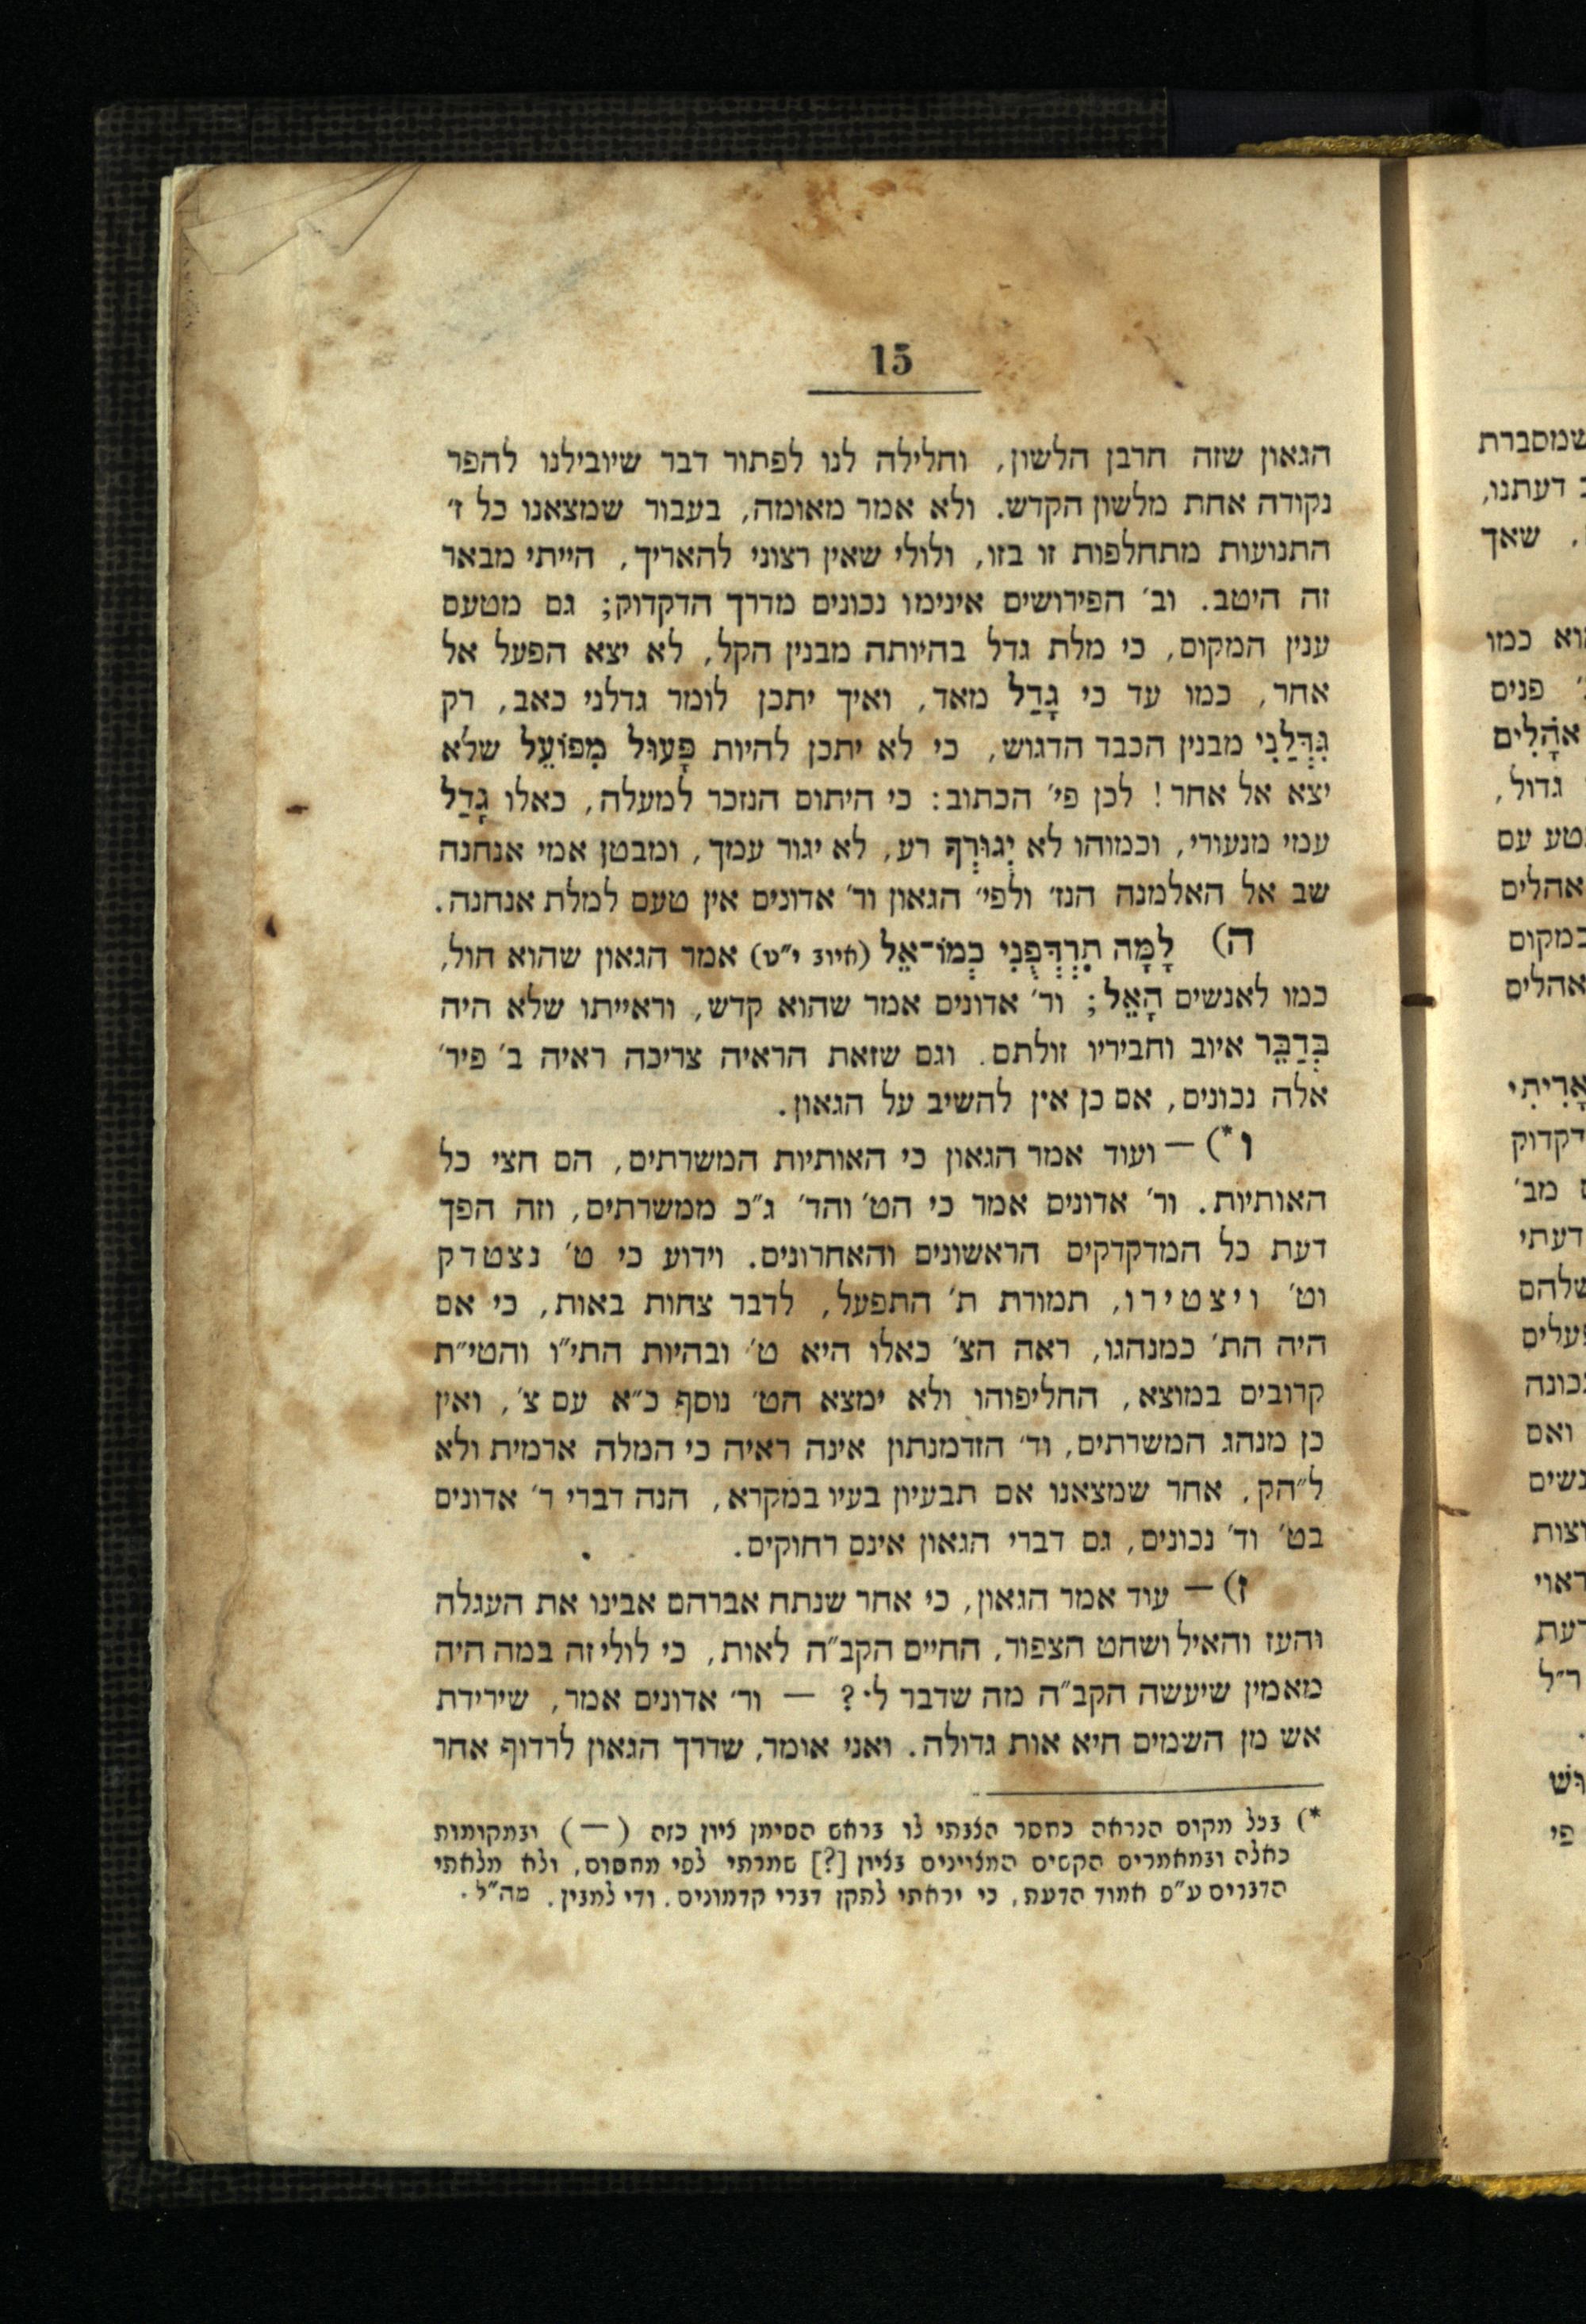 15
הגאון שזה חרבן הלשון, וחלילה לנו לפתור דבר שיובילנו להפר
נקודה אחת מלשון הקדש. ולא אמר מאומה, בעבור שמצאנו כל ז׳
התנועות מתחלפות זו בזו, ולולי שאין רצוני להאריך, הייתי מבאר
זה היטב. וב׳ הפירושים אינימו נכונים מדרך הדקדוק; גם מטעם
ענין המקום, כי מלת גדל בהיותה מבנין הקל, לא יצא הפעל אל
אחר, כמו עד כי גָדַל מאד, ואיך יתכן לומר גדלני כאב, רק
גִּדְּלַנִי מבנין הכבד הדגוש, כי לא יתכן להיות פָּעוּל מִפּוֹעֵל שלא
יצא אל אחר! לכן פי׳ הכתוב: כי היתום הנזכר למעלה, כאלו גָדַל
עמי מנעורי, וכמוהו לא יְגוּרְךָ רע, לא יגור עמך, ומבטן אמי אנחנה
שב אל האלמנה הנז׳ ולפי׳ הגאון ור׳ אדונים אין טעם למלת אנחנה.
ה) לָמָּה תִּרְדְּפֻנִי כְמוֹ־אֵל (איוב י״ט) אמר הגאון שהוא חול,
כמו לאנשים הָאֵל; ור׳ אדונים אמר שהוא קדש, וראייתו שלא היה
בְּדַבֵּר איוב וחביריו זולתם. וגם שזאת הראיה צריכה ראיה ב׳ פיר׳
אלה נכונים, אם כן אין להשיב על הגאון.
ו*) — ועוד אמר הגאון כי האותיות המשרתים, הם חצי כל
האותיות. ור׳ אדונים אמר כי הט׳ והד׳ ג״כ ממשרתים, וזה הפך
דעת כל המדקדקים הראשונים והאחרונים. וידוע כי ט׳ נצטדק
וט׳ ויצטירו, תמורת ת׳ התפעל, לדבר צחות באות, כי אם
היה הת׳ כמנהגו, ראה הצ׳ כאלו היא ט׳ ובהיות התי״ו והטי״ת
קרובים במוצא, החליפוהו ולא ימצא הט׳ נוסף כ״א עם צ׳, ואין
כן מנהג המשרתים, וד׳ הזדמנתון אינה ראיה כי המלה ארמית ולא
ל״הק, אחר שמצאנו אם תבעיון בעיו במקרא, הנה דברי ר׳ אדונים
בט׳ וד׳ נכונים, גם דברי הגאון אינם רחוקים.
ז) — עוד אמר הגאון, כי אחר שנתח אברהם אבינו את העגלה
והעז והאיל ושחט הצפור, החיים הקב״ה לאות, כי לולי זה במה היה
מאמין שיעשה הקב״ה מה שדבר לי? — ור׳ אדונים אמר, שירידת
אש מן השמים היא אות גדולה. ואני אומר, שדרך הגאון לרדוף אחר
*) בכל מקום הנראה כחסר הצבתי לו בראש הסימן ציון כזה (—) ובמקומות
כאלה ובמאמרים הקשים המצויינים בציון [?] שמרתי לפי מחסום, ולא מלאתי
הדברים ע״פ אמוד הדעת, כי יראתי לתקן דברי קדמונים. ודי למבין. מה״ל.
שמסברת
דעתנו,
שאך
כמו
פנים
אהָלִים
גדול,
עם
אהלים
במקום
אהלים
דקדוק
מב׳
דעתי
שלהם
ואם
ר״ל
פי